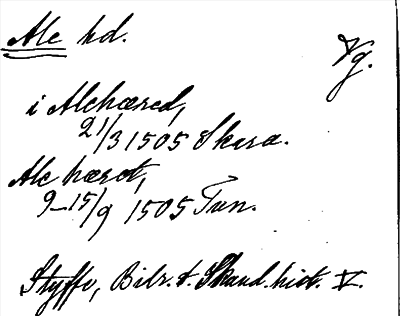 Ale hd.
Vg.
i Alehæred,
21/3 1505 Skara.
Ale hæret,
9-15/9 1505 Tun.
Styffe, Bidr. t. Skand. hist. V.